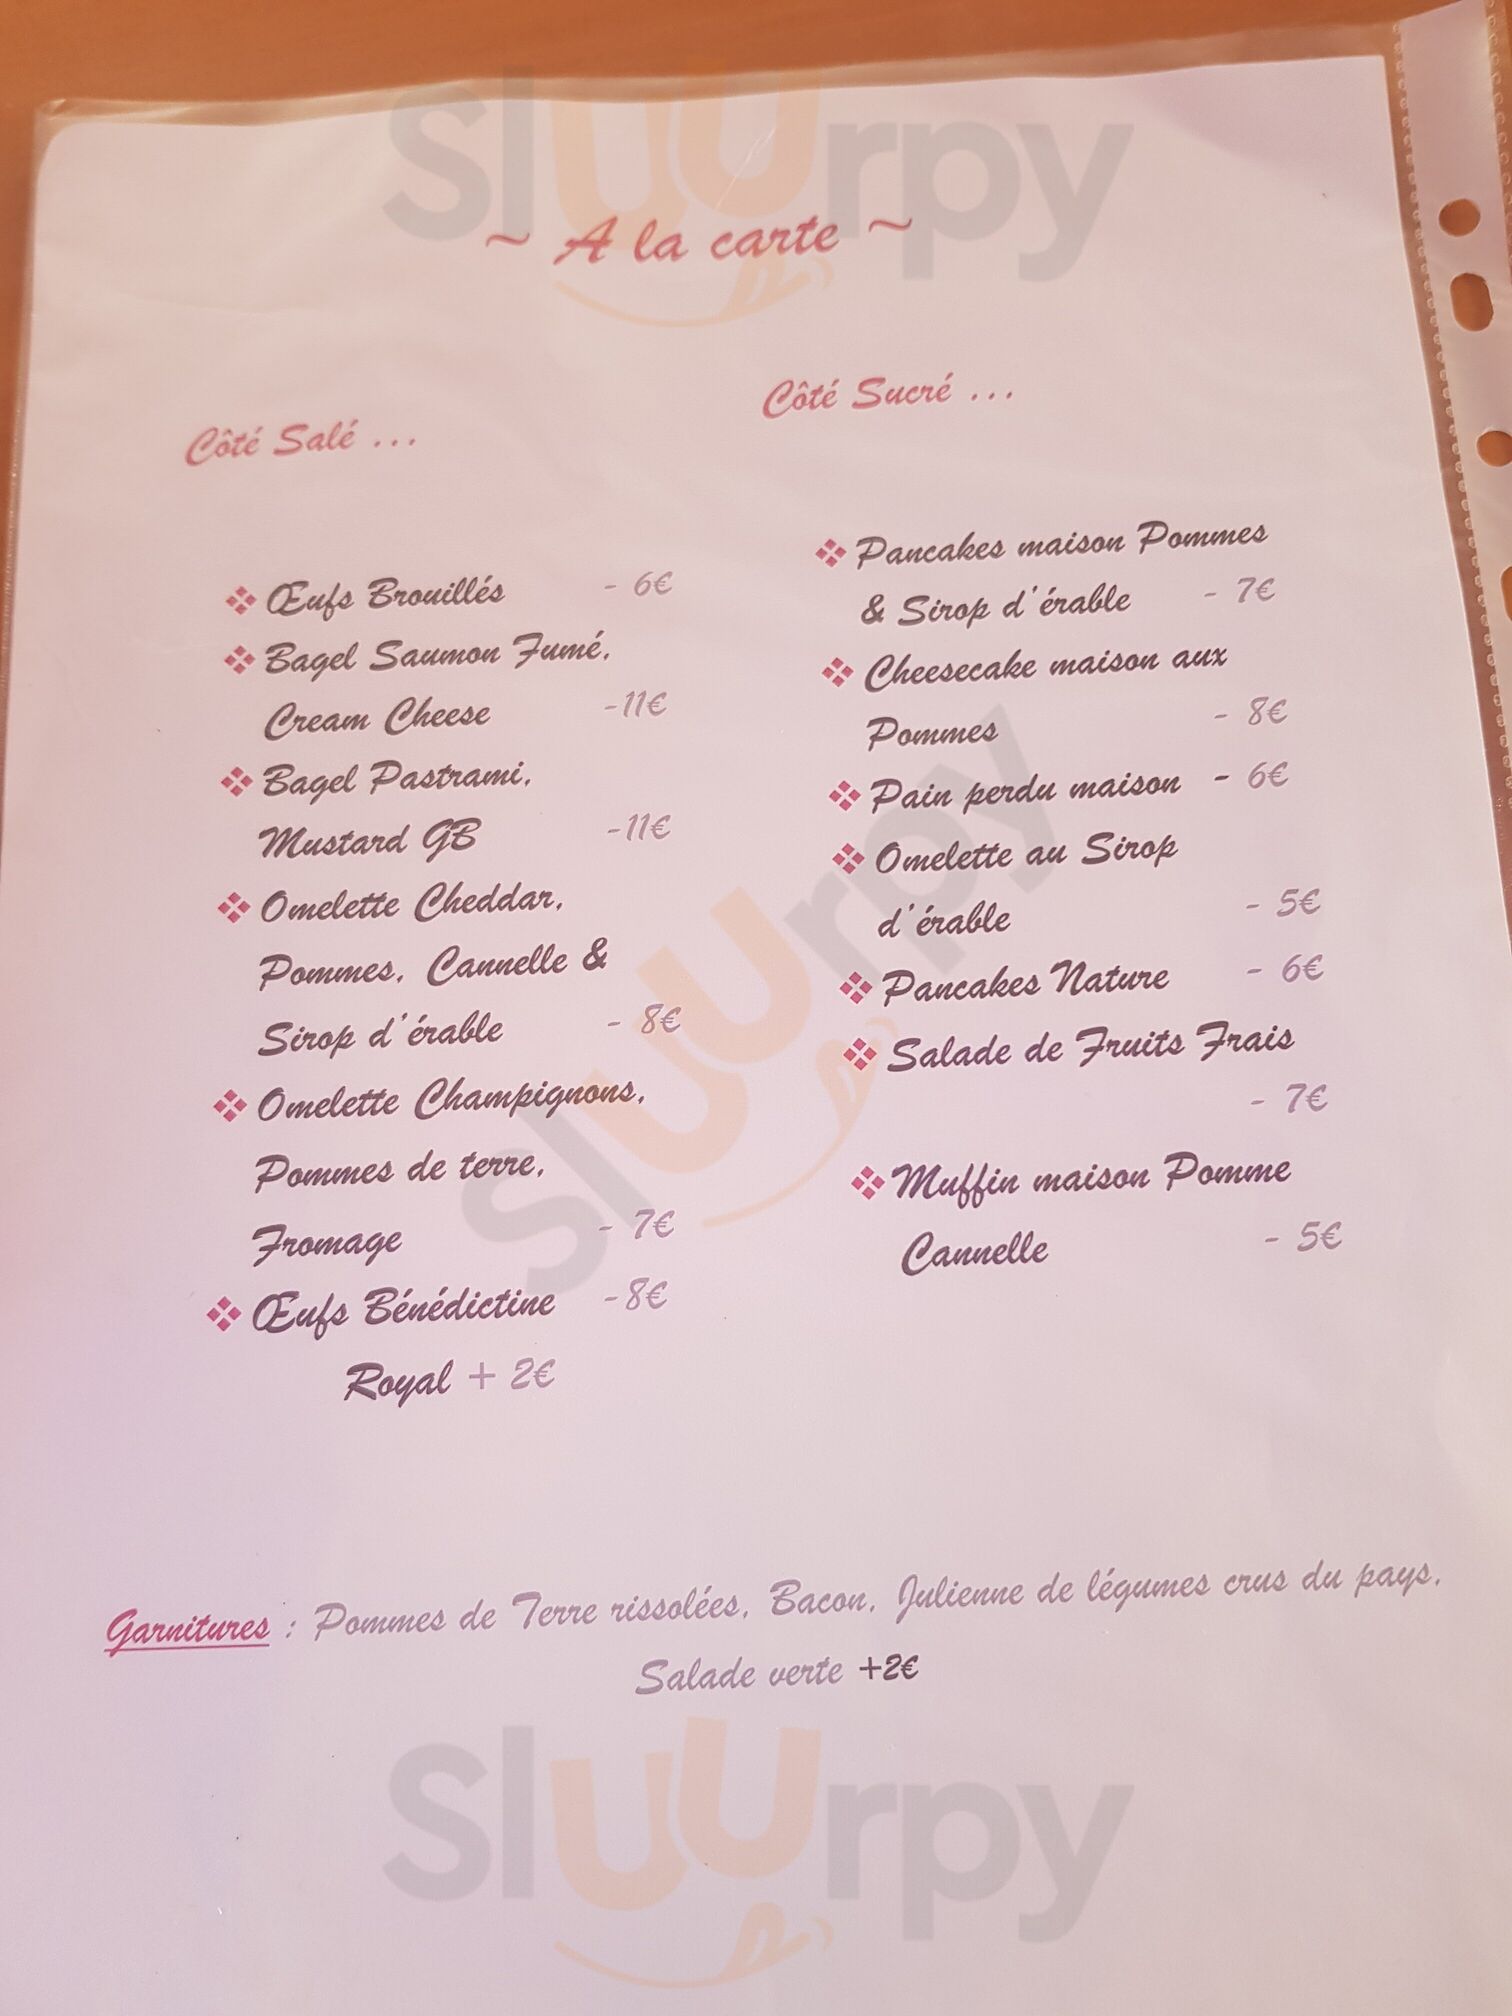 ~ A la carte ~
Côté Salé ...
Œufs Brouillés - 6€
Bagel Saumon Fumé,
Cream Cheese -11€
Bagel Pastrami,
Mustard GB -11€
Omelette Cheddar,
Pommes, Cannelle &
Sirop d'érable - 8€
Omelette Champignons,
Pommes de terre,
Fromage - 7€
Œufs Bénédictine -8€
Royal + 2€
Côté Sucré ...
Pancakes maison Pommes
& Sirop d'érable - 7€
Cheesecake maison aux
Pommes - 8€
Pain perdu maison - 6€
Omelette au Sirop
d'érable - 5€
Pancakes Nature - 6€
Salade de Fruits Frais
- 7€
Muffin maison Pomme
Cannelle - 5€
Garnitures : Pommes de Terre rissolées, Bacon, Julienne de légumes crus du pays,
Salade verte +2€
Sluurpy
Sluurpy
Sluurpy